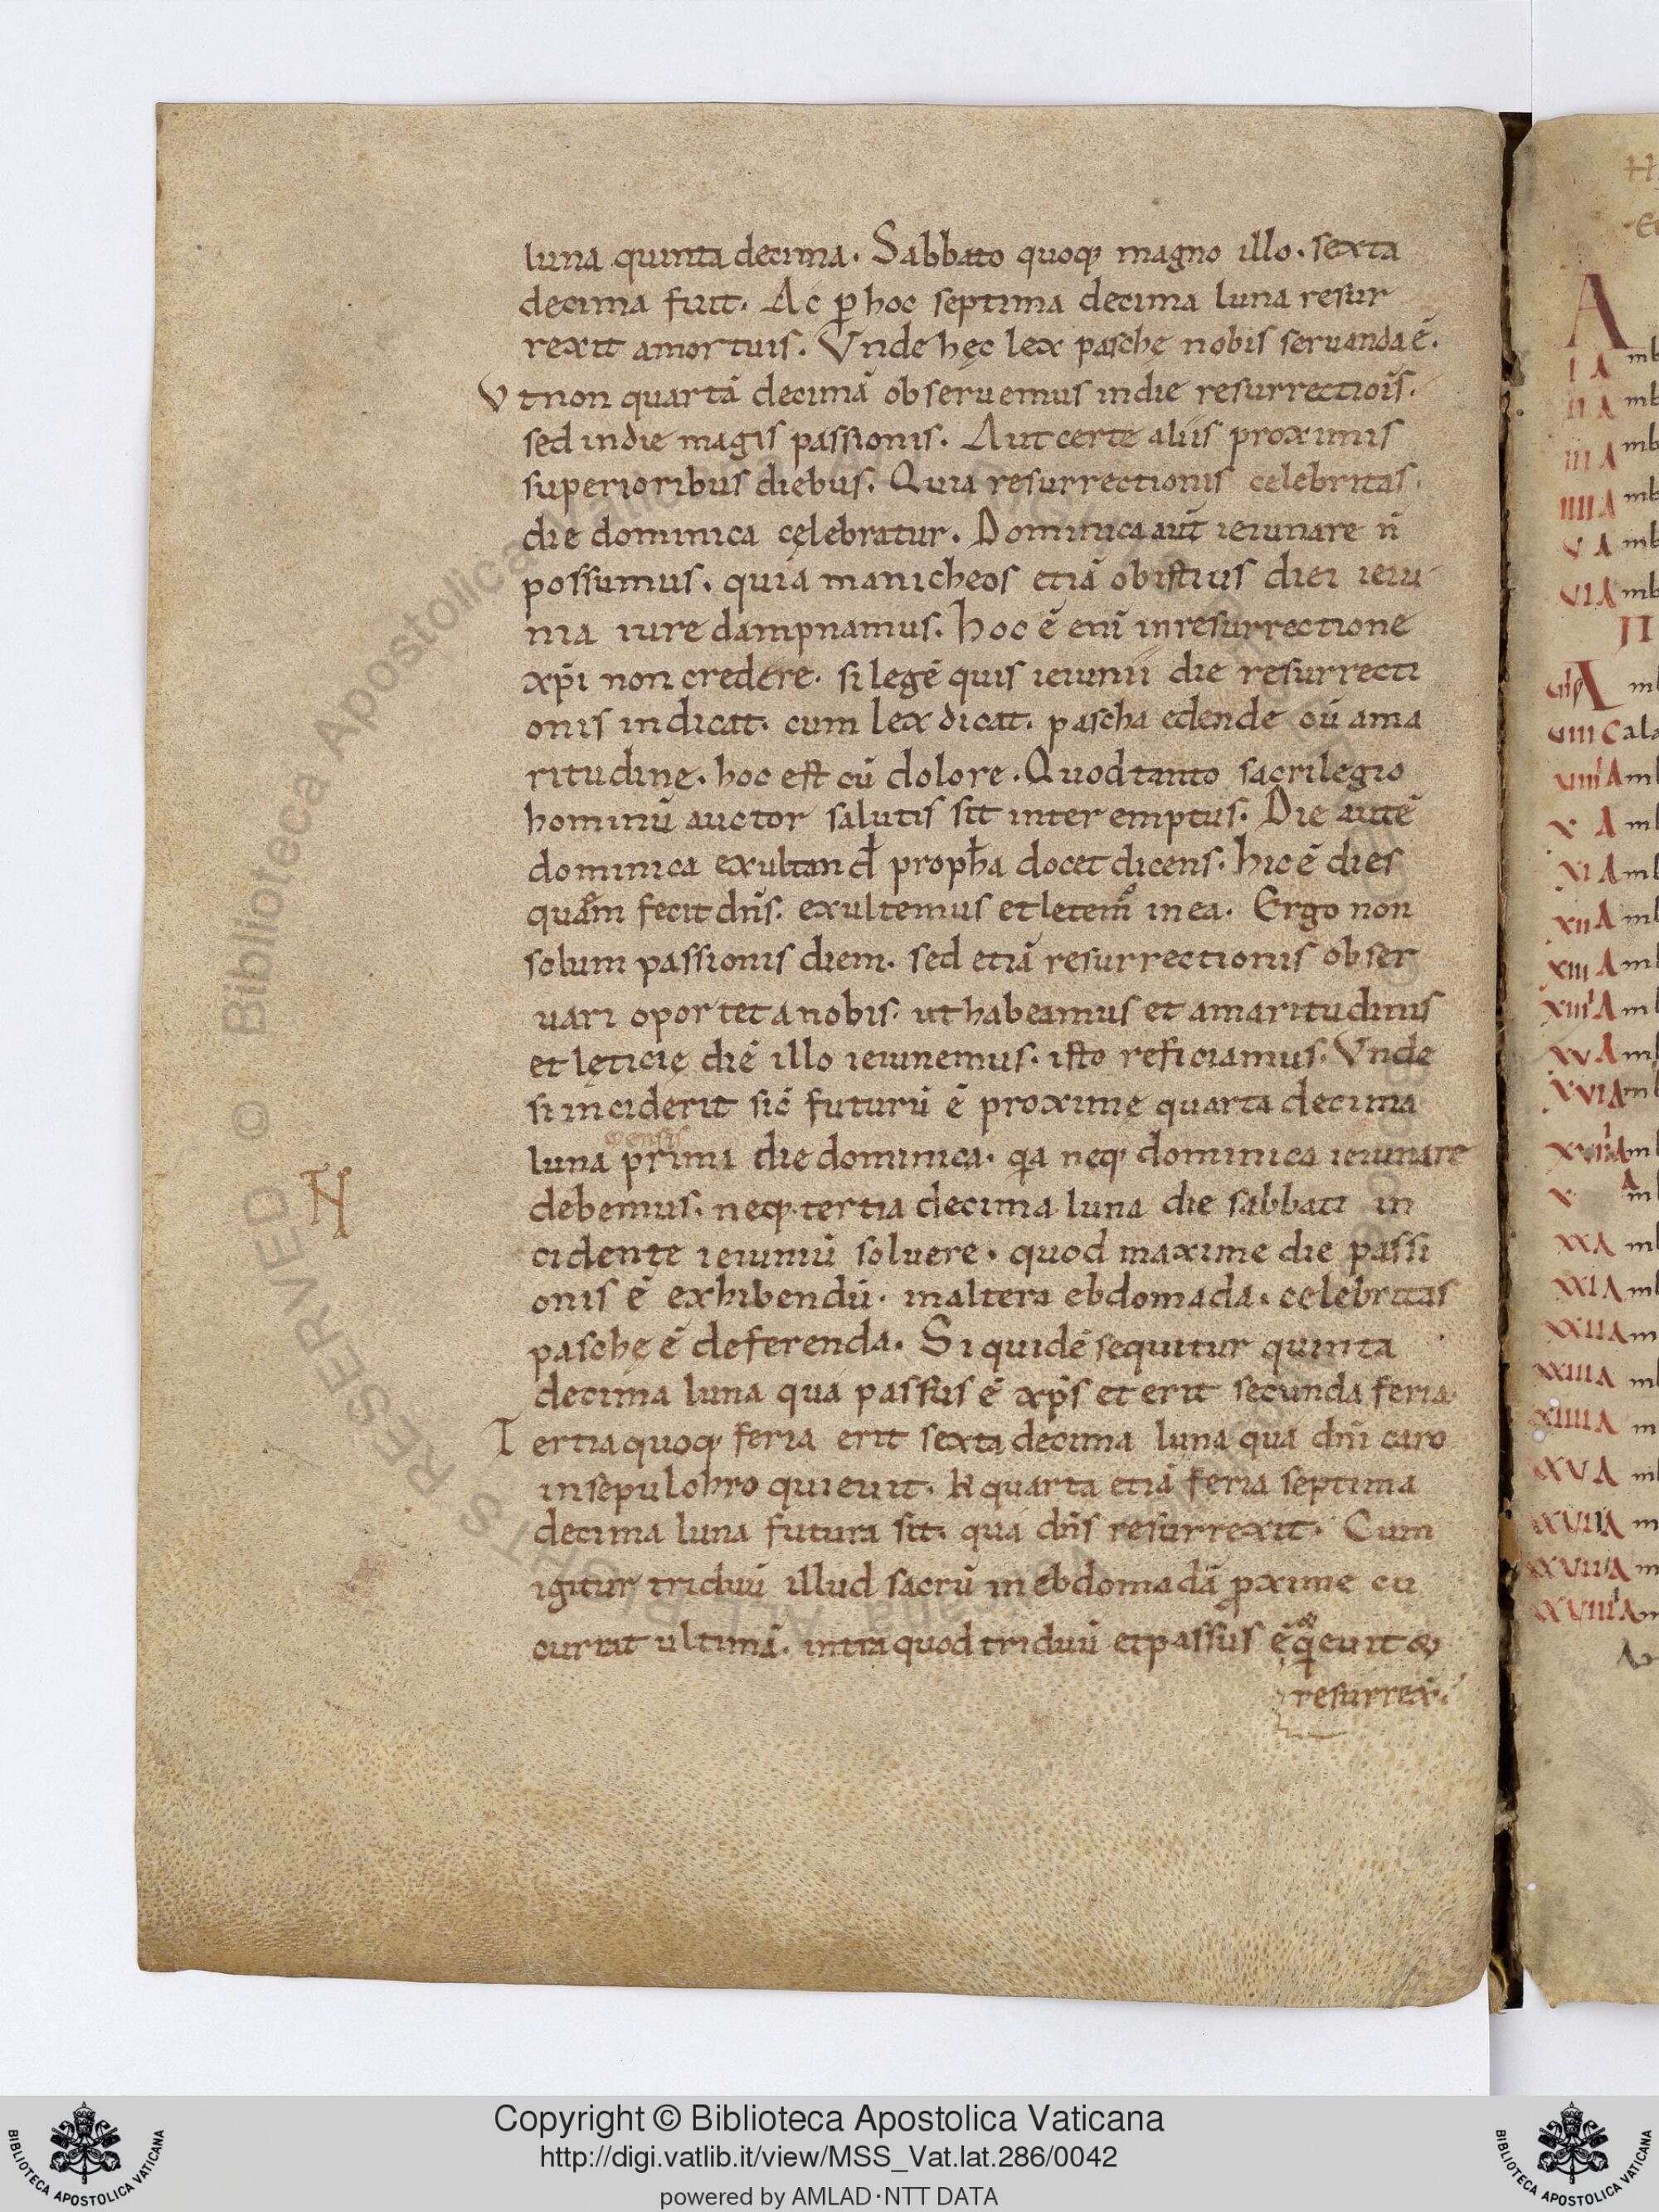 luna quinta decima. Sabbato quoq; magno illo. sexta
decima fuit. Ac ꝑ hoc septima decima luna resur
rexit amortuis. Vnde hęc lex paschę nobis seruanda ē.
Vt non quartā decimā obseruemus indie resurrectiōīs.
sed indie magis passionis. Aut certe aliis proximis
superioribus diebus. Quia resurrectionis celebritas
die dominica cęlebratur. Dominica aut̄ ieiunare n̄
possumus. quia manicheos etiā ob istius diei ieiu
nia iure dampnamus. hoc ē eni̅ inresurrectione
xp̄i non credere. si legē quis ieiunii die resurrecti
onis indicat. cum lex dicat. pascha edende cū ama
ritudine. hoc est cū dolore. Quod tanto sacrilegio
hominū auctor salutis sit interemptus. Die autē
dominica exultand̄ proph̄a docet dicens. hic ē dies
quā̄m fecit dn̄s. exultemus et letem᷒ inea. Ergo non
solum passionis diem. sed etiā resurrectionis obser
uari oportet anobis. ut habeamus et amaritudinis
et lęticię diē illo ieiunemus. isto reficiamus. Vnde
si inciderit sic̄ futurū ē proximę quarta decima
mensis
luna primi die dominica. q̄a neq; dominica ieiunare
debemus. neq; tertia decima luna die sabbati in
cidente ieiuniū soluere. quod maxime die passi
onis ē exhibendū. inaltera ebdomada. celebritas
paschę ē deferenda. Si quidē sequitur quinta
decima luna qua passus ē xp̄s et erit secunda feria.
Tertia quoq; feria erit sexta decima luna qua dn̄i caro
insepulchro quieuit. &quarta etiā feria septima
decima luna futura sit. qua dn̄s resurrexit. Cum
igitur triduū illud sacrū in ebdomadā ꝓxime cu
currat ultimā. intra quod triduū et passus ē q̄euit &
resurrex̄.
N
A
I A mb
II A mb
III A mb
IIII A mb
V A mb
VI A mb
II
A m
VIII Cala
VIIII Am
X A m
XI A m
XII A m
XIII A m
XIIII A m
XV A m
XVI A m
XXI A m
XXII A m
Copyright © Biblioteca Apostolica Vaticana
http://digi.vatlib.it/view/MSS_Vat.lat.286/0042
powered by AMLAD·NTT DATA
BIBLIOTECA APOSTOLICA VATICANA
BIBLIOTECA APOSTOLICA VATICANA